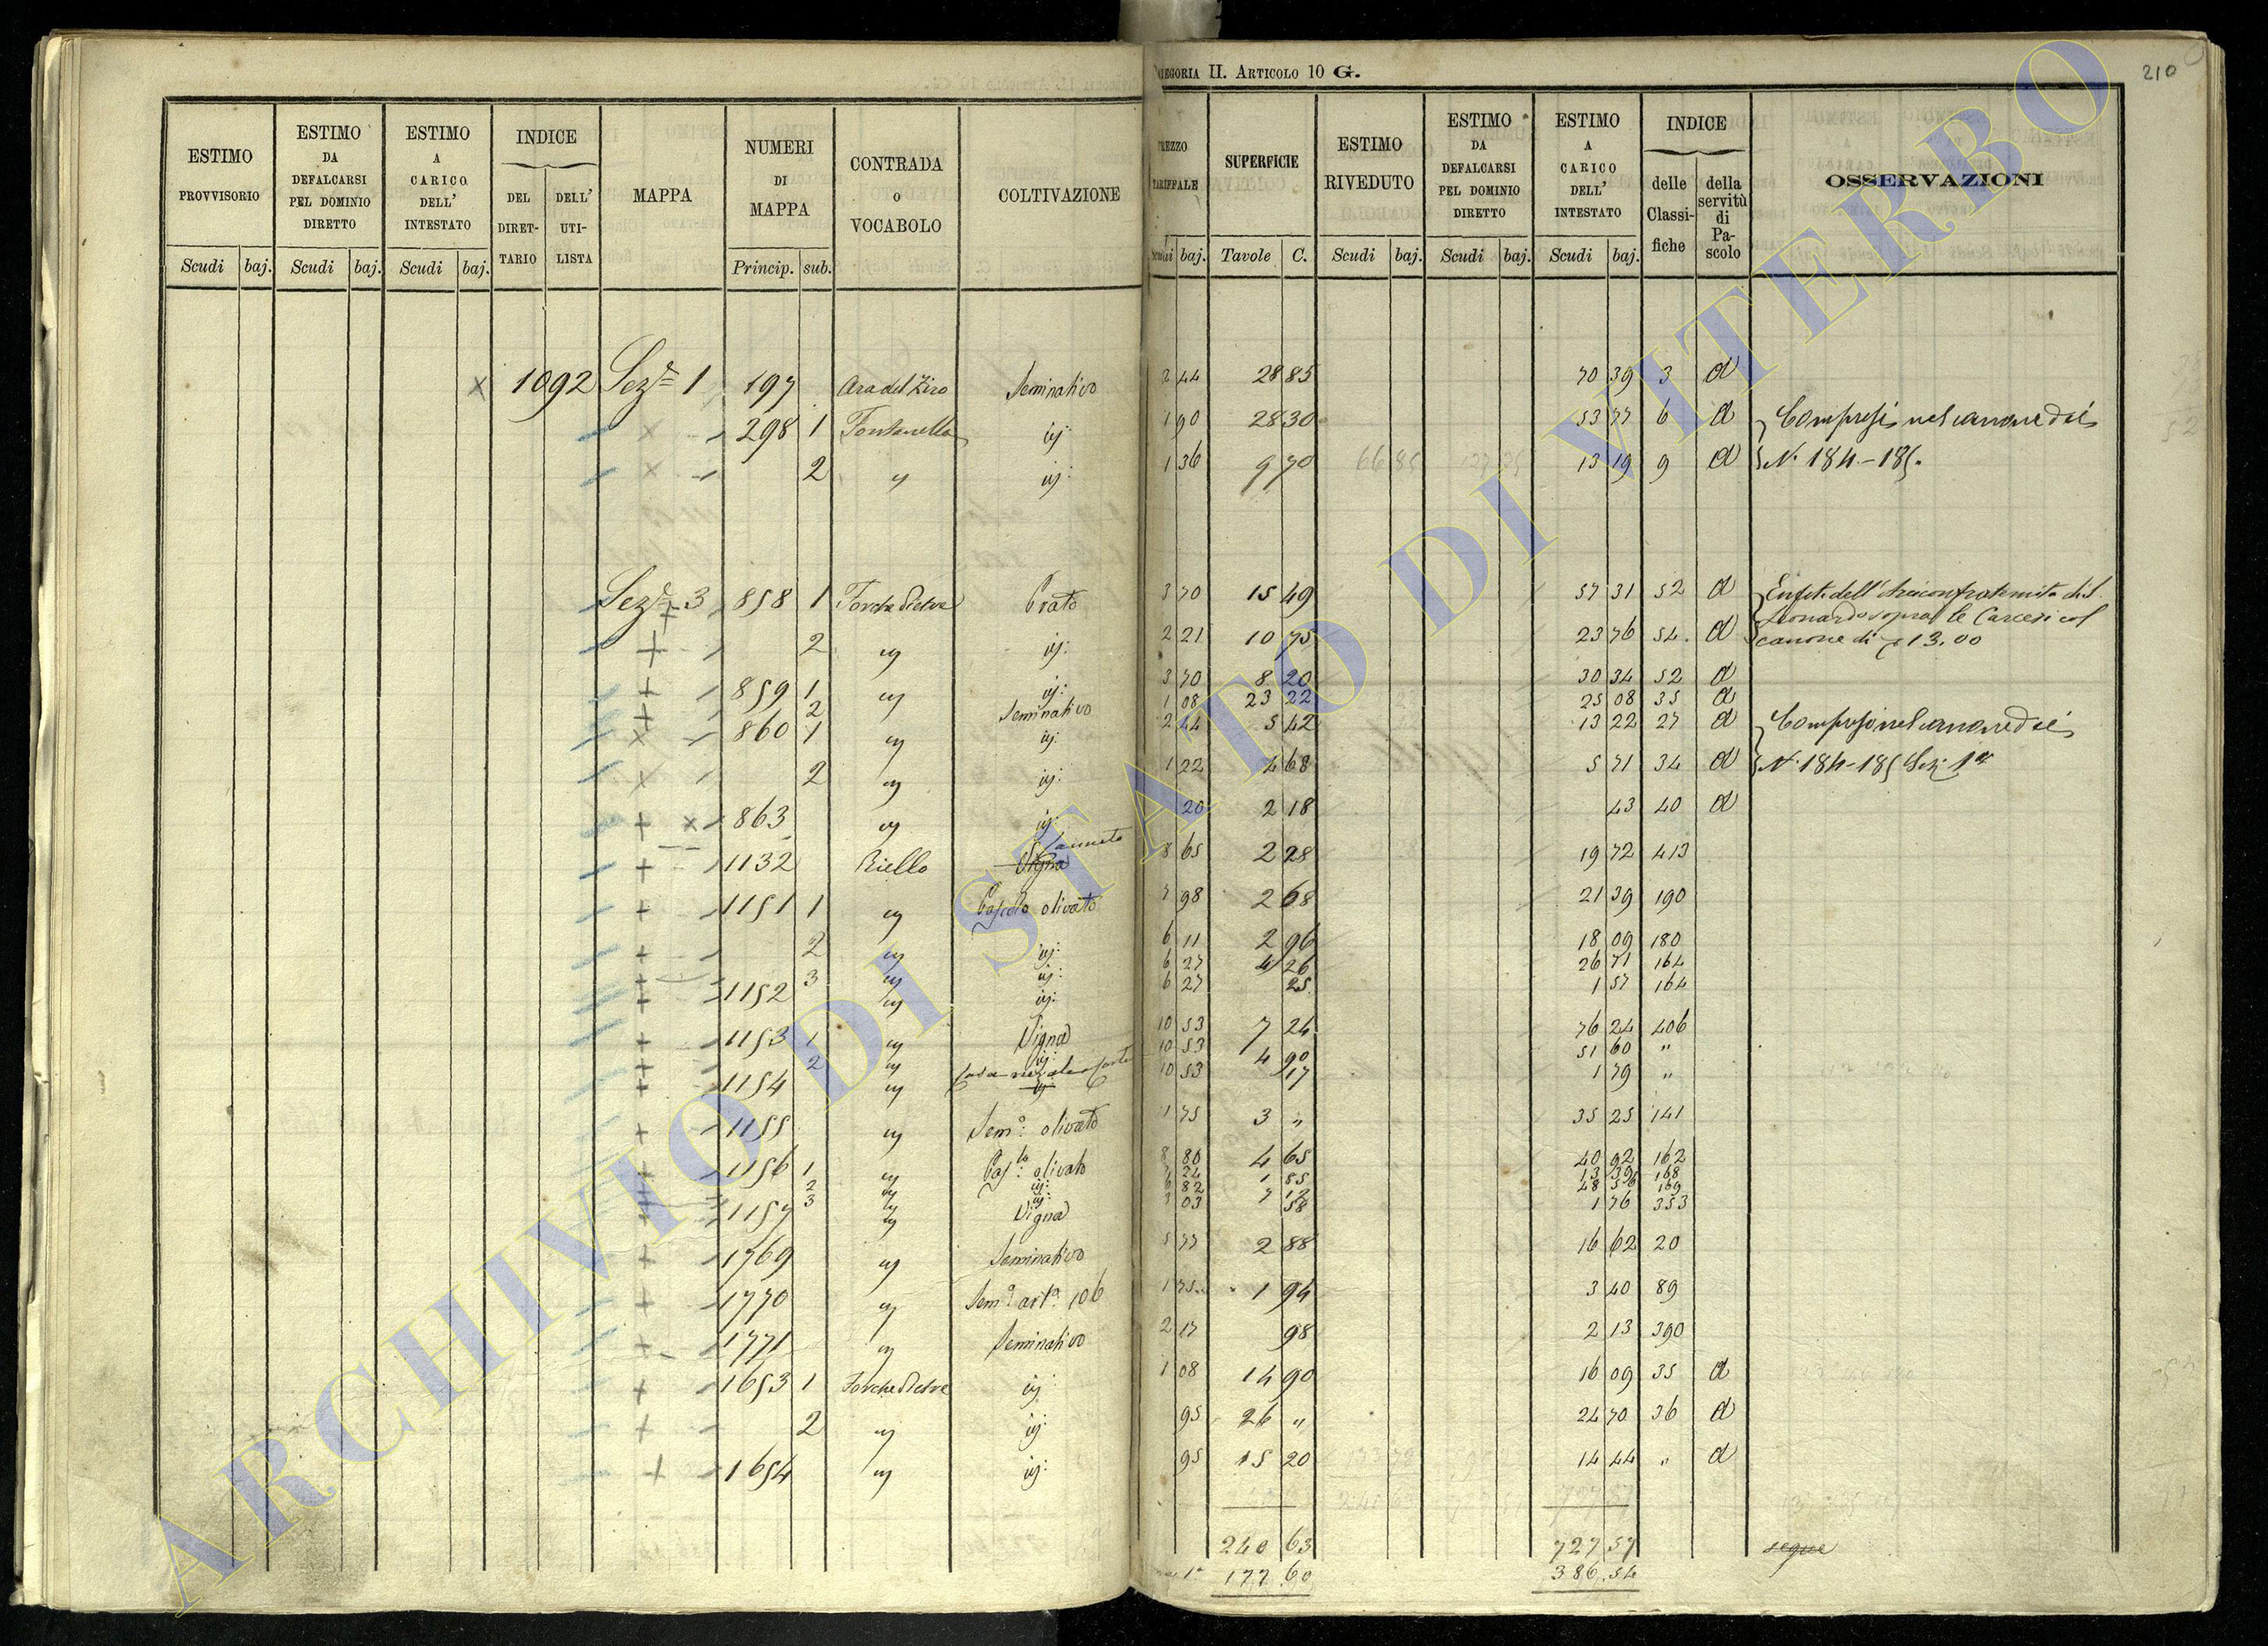 CATEGORIA II. ARTICOLO 10 G.
210
ESTIMO PROVVISORIO
Scudi baj.
ESTIMO DA DEFALCARSI PEL DOMINIO DIRETTO
Scudi baj.
ESTIMO A CARICO DELL' INTESTATO
Scudi baj.
INDICE
DEL DIRET-TARIO
DELL' UTI-LISTA
MAPPA
NUMERI DI MAPPA
Princip. sub.
CONTRADA o VOCABOLO
COLTIVAZIONE
PREZZO TARIFFALE
Scudi baj.
SUPERFICIE
Tavole C.
ESTIMO RIVEDUTO
Scudi baj.
ESTIMO DA DEFALCARSI PEL DOMINIO DIRETTO
Scudi baj.
ESTIMO A CARICO DELL' INTESTATO
Scudi baj.
INDICE
delle Classi-fiche
della servitù di Pa-scolo
OSSERVAZIONI
1092 Sez. 1 197 Ara del Ziro Seminativo 2 44 28 85 70 39 3 a
298 1 Fontanella id: 1 90 28 30 53 77 6 a Compresi nel canone dei
2 " id: 1 36 9 70 13 19 9 a N. 184-185.
Sez. 3 858 1 Forche Pietre Prato 3 70 15 49 57 31 52 a Enfit. dell' Arciconfraternita di S.
Leonardo sopra le Carceri col
2 " id: 2 21 10 75 23 76 54 a canone di 13.00
859 1 " id: 3 70 8 20 30 34 52 a
2 Seminativo 1 08 23 22 25 08 35 a
860 1 " id: 2 44 5 42 13 22 27 a Compresi nel canone dei
2 " id: 1 22 4 68 5 71 34 a N. 184-185 Sez. 1ª
863 " id: 20 2 18 43 40 a
1132 Riello Vigna Canneto 8 65 2 28 19 72 413
1151 1 " Pascolo olivato 7 98 2 68 21 39 190
2 " id: 6 11 2 96 18 09 180
3 " id: 6 27 4 26 26 71 164
1152 " id: 6 27 25 1 57 164
1153 1 " Vigna 10 53 7 24 76 24 406
2 " id: 10 53 4 90 51 60 "
1154 " 10 53 17 1 79 "
1155 " Sem.º olivato 3 " 35 25 141
1156 1 " Pas.lo olivato 8 80 4 65 40 92 162
2 " id: 7 24 1 85 13 39 168
3 " id: 6 82 7 12 48 56 169
1157 " Vigna 3 03 58 1 76 353
1769 " Seminativo 5 77 2 88 16 62 20
1770 " Sem.º art.º 106 1 75 1 94 3 40 89
1771 " Seminativo 2 17 98 2 13 390
1653 1 Forche Pietre id: 1 08 14 90 16 09 35 a
2 " id: 95 26 " 24 70 36 a
1654 " id: 95 15 20 14 44 " a
240 63 727 57 segue
177 60 386.54
ARCHIVIO DI STATO DI VITERBO